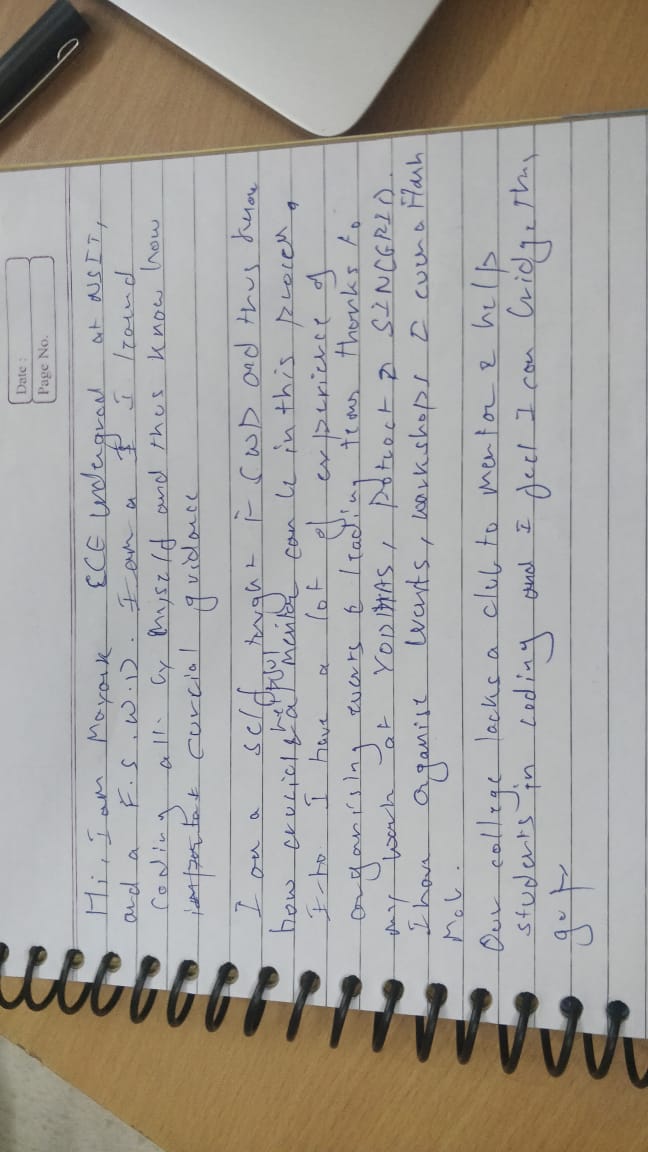 Date :
Page No.
Hi, I am Mayank ECE undergrad at NSIT,
and a F.S.W.D. I am a I I learnd
coding all by myself and thus know how
important curcial guidance
I am a self taught FSWD and thus know
how crucial & helpful a mentor can be in this process.
I to I have a lot of experience of
organising events & leading teams thanks to
my work at
I have organise events, workshops & even a Flash
Mob.
Our college lacks a club to mentor & help
students in coding and I feel I can bridge this
gap